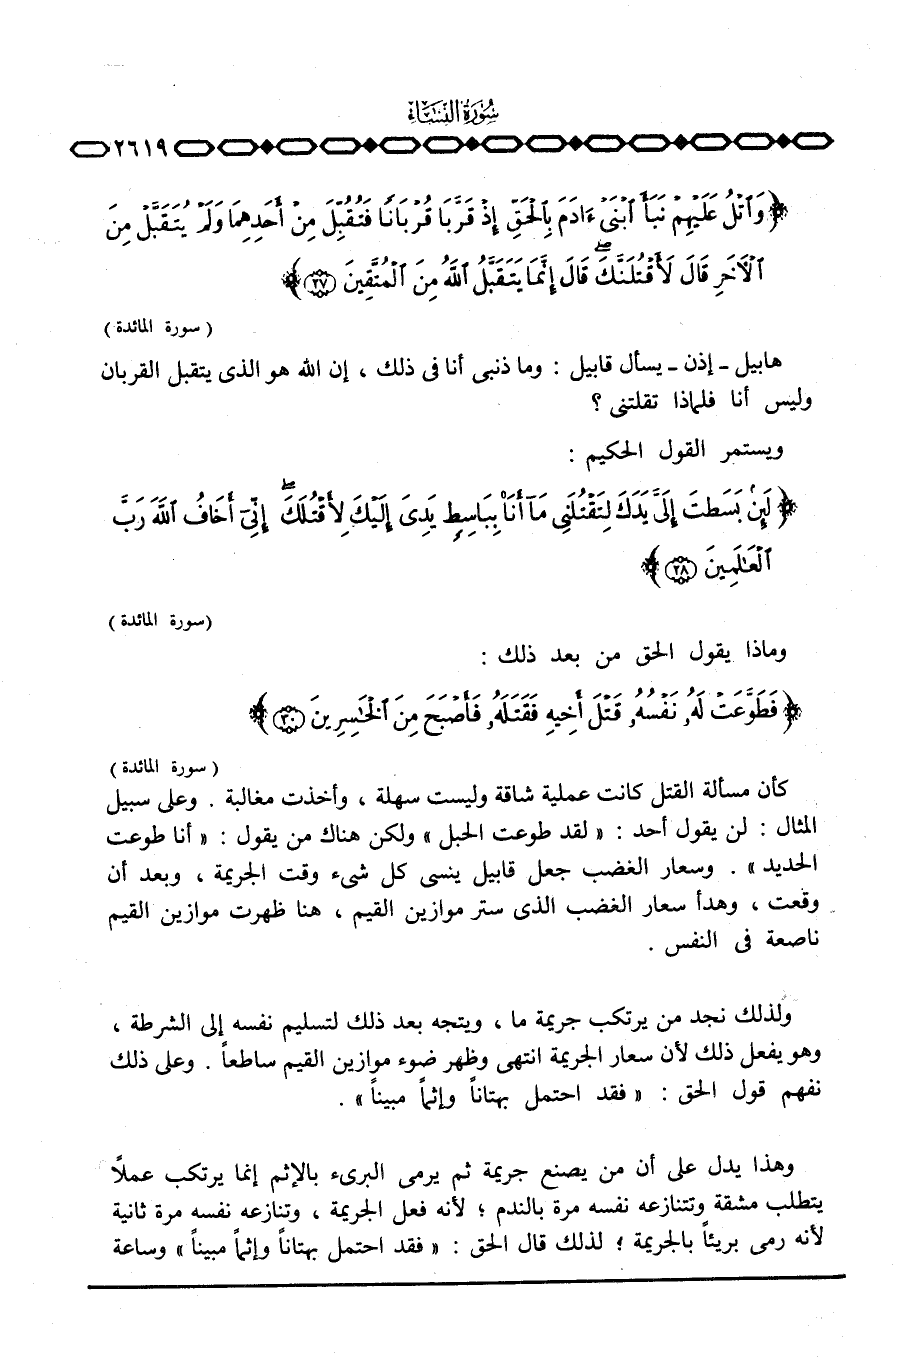 سُورَةُ النِّسَاءِ
٢٦١٩
﴿ وَٱتْلُ عَلَيْهِمْ نَبَأَ ٱبْنَىْ ءَادَمَ بِٱلْحَقِّ إِذْ قَرَّبَا قُرْبَانًا فَتُقُبِّلَ مِنْ أَحَدِهِمَا وَلَمْ يُتَقَبَّلْ مِنَ
ٱلْآخَرِ قَالَ لَأَقْتُلَنَّكَ ۖ قَالَ إِنَّمَا يَتَقَبَّلُ ٱللَّهُ مِنَ ٱلْمُتَّقِينَ ﴿٢٧﴾ ﴾
( سورة المائدة )
هابيل ـ إذن ـ يسأل قابيل : وما ذنبى أنا فى ذلك ، إن الله هو الذى يتقبل القربان
وليس أنا فلماذا تقلتنى ؟
ويستمر القول الحكيم :
﴿ لَئِنۢ بَسَطتَ إِلَىَّ يَدَكَ لِتَقْتُلَنِى مَآ أَنَا۠ بِبَاسِطٍ يَدِىَ إِلَيْكَ لِأَقْتُلَكَ ۖ إِنِّىٓ أَخَافُ ٱللَّهَ رَبَّ
ٱلْعَٰلَمِينَ ﴿٢٨﴾ ﴾
(سورة المائدة )
وماذا يقول الحق من بعد ذلك :
﴿ فَطَوَّعَتْ لَهُۥ نَفْسُهُۥ قَتْلَ أَخِيهِ فَقَتَلَهُۥ فَأَصْبَحَ مِنَ ٱلْخَٰسِرِينَ ﴿٣٠﴾ ﴾
( سورة المائدة )
كأن مسألة القتل كانت عملية شاقة وليست سهلة ، وأخذت مغالبة . وعلى سبيل
المثال : لن يقول أحد : « لقد طوعت الحبل » ولكن هناك من يقول : « أنا طوعت
الحديد » . وسعار الغضب جعل قابيل ينسى كل شىء وقت الجريمة ، وبعد أن
وقعت ، وهدأ سعار الغضب الذى ستر موازين القيم ، هنا ظهرت موازين القيم
ناصعة فى النفس .
ولذلك نجد من يرتكب جريمة ما ، ويتجه بعد ذلك لتسليم نفسه إلى الشرطة ،
وهو يفعل ذلك لأن سعار الجريمة انتهى وظهر ضوء موازين القيم ساطعاً . وعلى ذلك
نفهم قول الحق : « فقد احتمل بهتاناً وإثماً مبيناً » .
وهذا يدل على أن من يصنع جريمة ثم يرمى البرىء بالإثم إنما يرتكب عملاً
يتطلب مشقة وتتنازعه نفسه مرة بالندم ؛ لأنه فعل الجريمة ، وتنازعه نفسه مرة ثانية
لأنه رمى بريئاً بالجريمة ؛ لذلك قال الحق : « فقد احتمل بهتاناً وإثماً مبيناً » وساعة